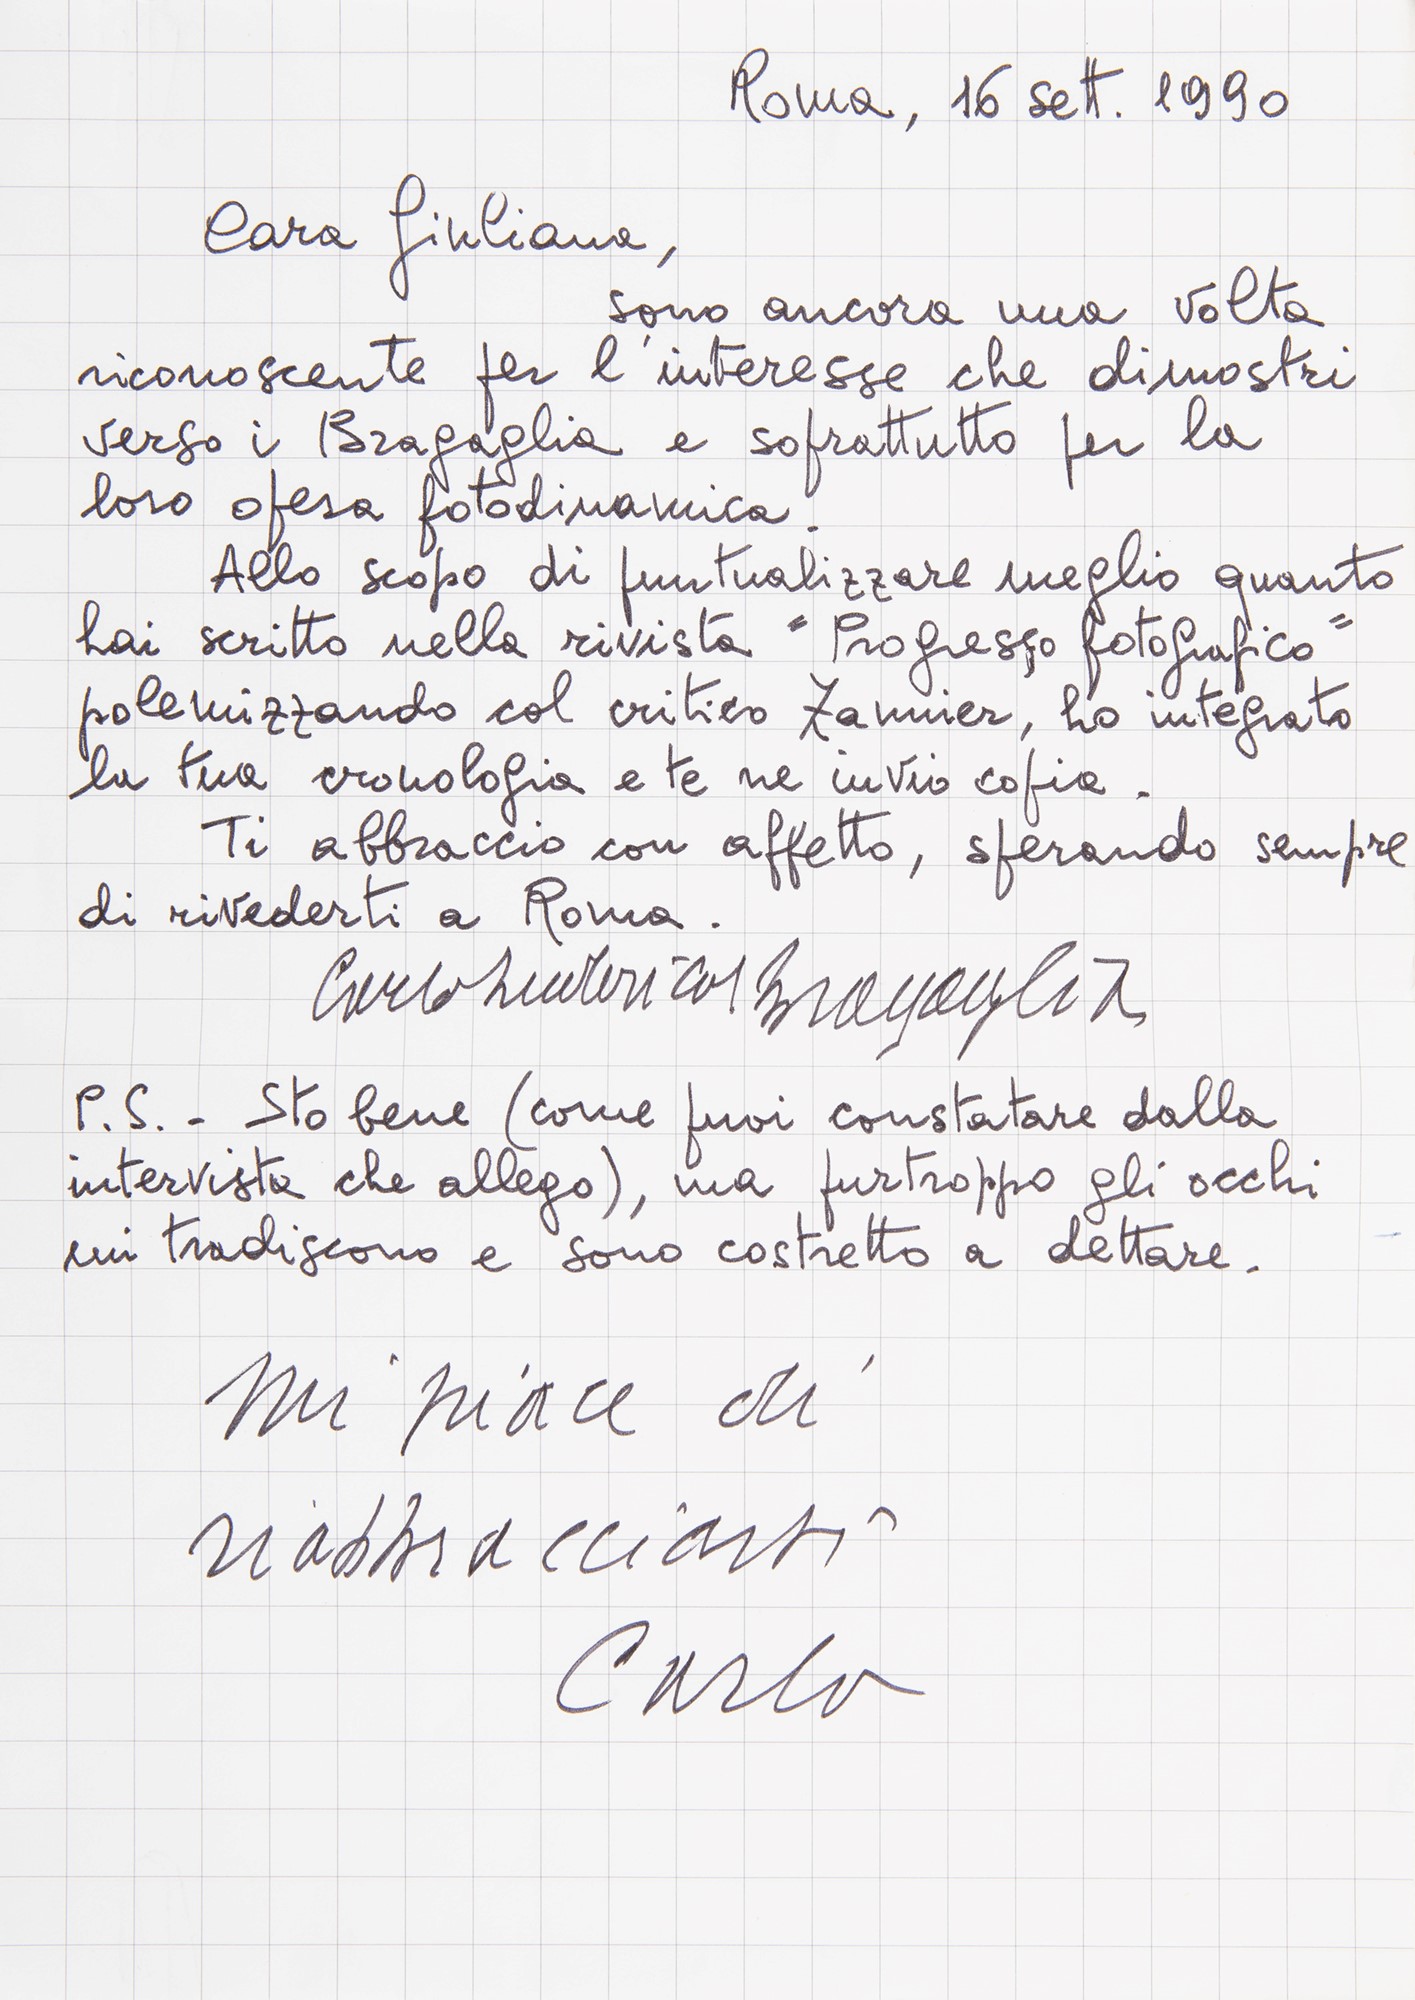 Roma, 16 sett. 1990
Cara Giuliana,
sono ancora una volta
riconoscente per l'interesse che dimostri
verso i Bragaglia e soprattutto per la
loro opera fotodinamica.
Allo scopo di puntualizzare meglio quanto
hai scritto nella rivista "Progresso fotografico"
polemizzando col critico Zannier, ho integrato
la tua cronologia e te ne invio copia.
Ti abbraccio con affetto, sperando sempre
di rivederti a Roma.
Carlo Ludovico Bragaglia
P.S. - Sto bene (come puoi constatare dalla
intervista che allego), ma purtroppo gli occhi
mi tradiscono e sono costretto a dettare.
Mi piace di
riabbracciarti
Carlo